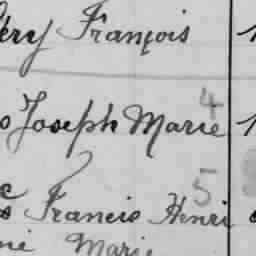 éry François
4
Joseph Marie
5
Francis Henri
Marie